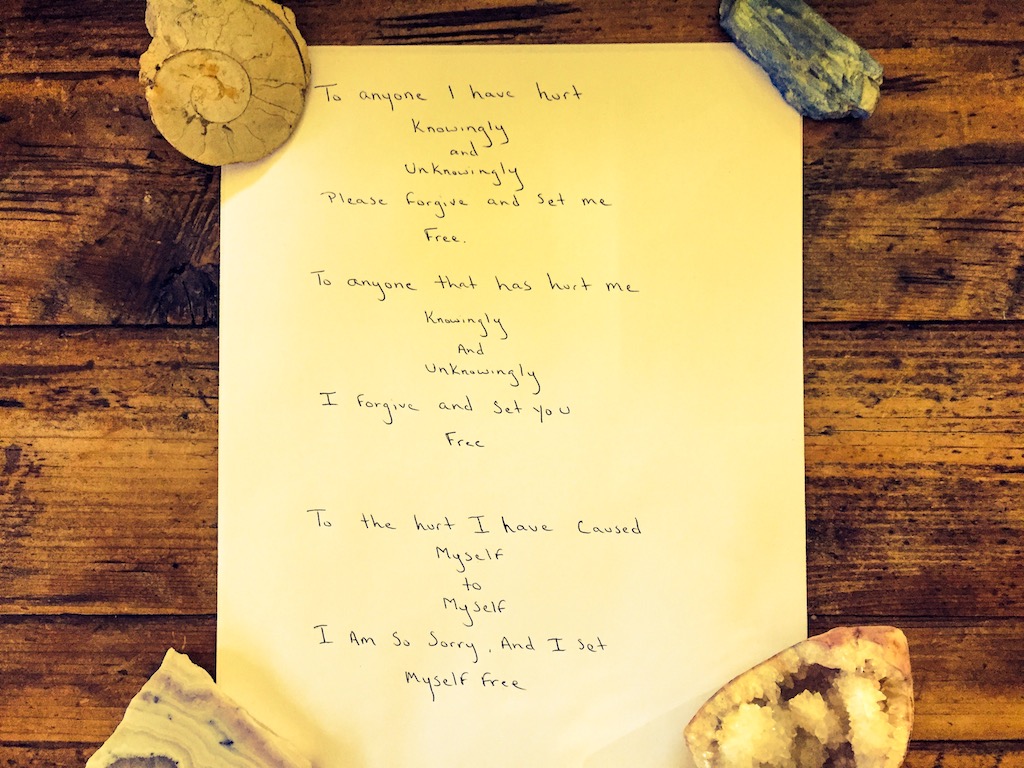 To anyone I have hurt
Knowingly
and
Unknowingly
Please forgive and set me
Free.
To anyone that has hurt me
Knowingly
And
Unknowingly
I forgive and set you
Free
To the hurt I have caused
Myself
to
Myself
I Am So Sorry, And I set
Myself free